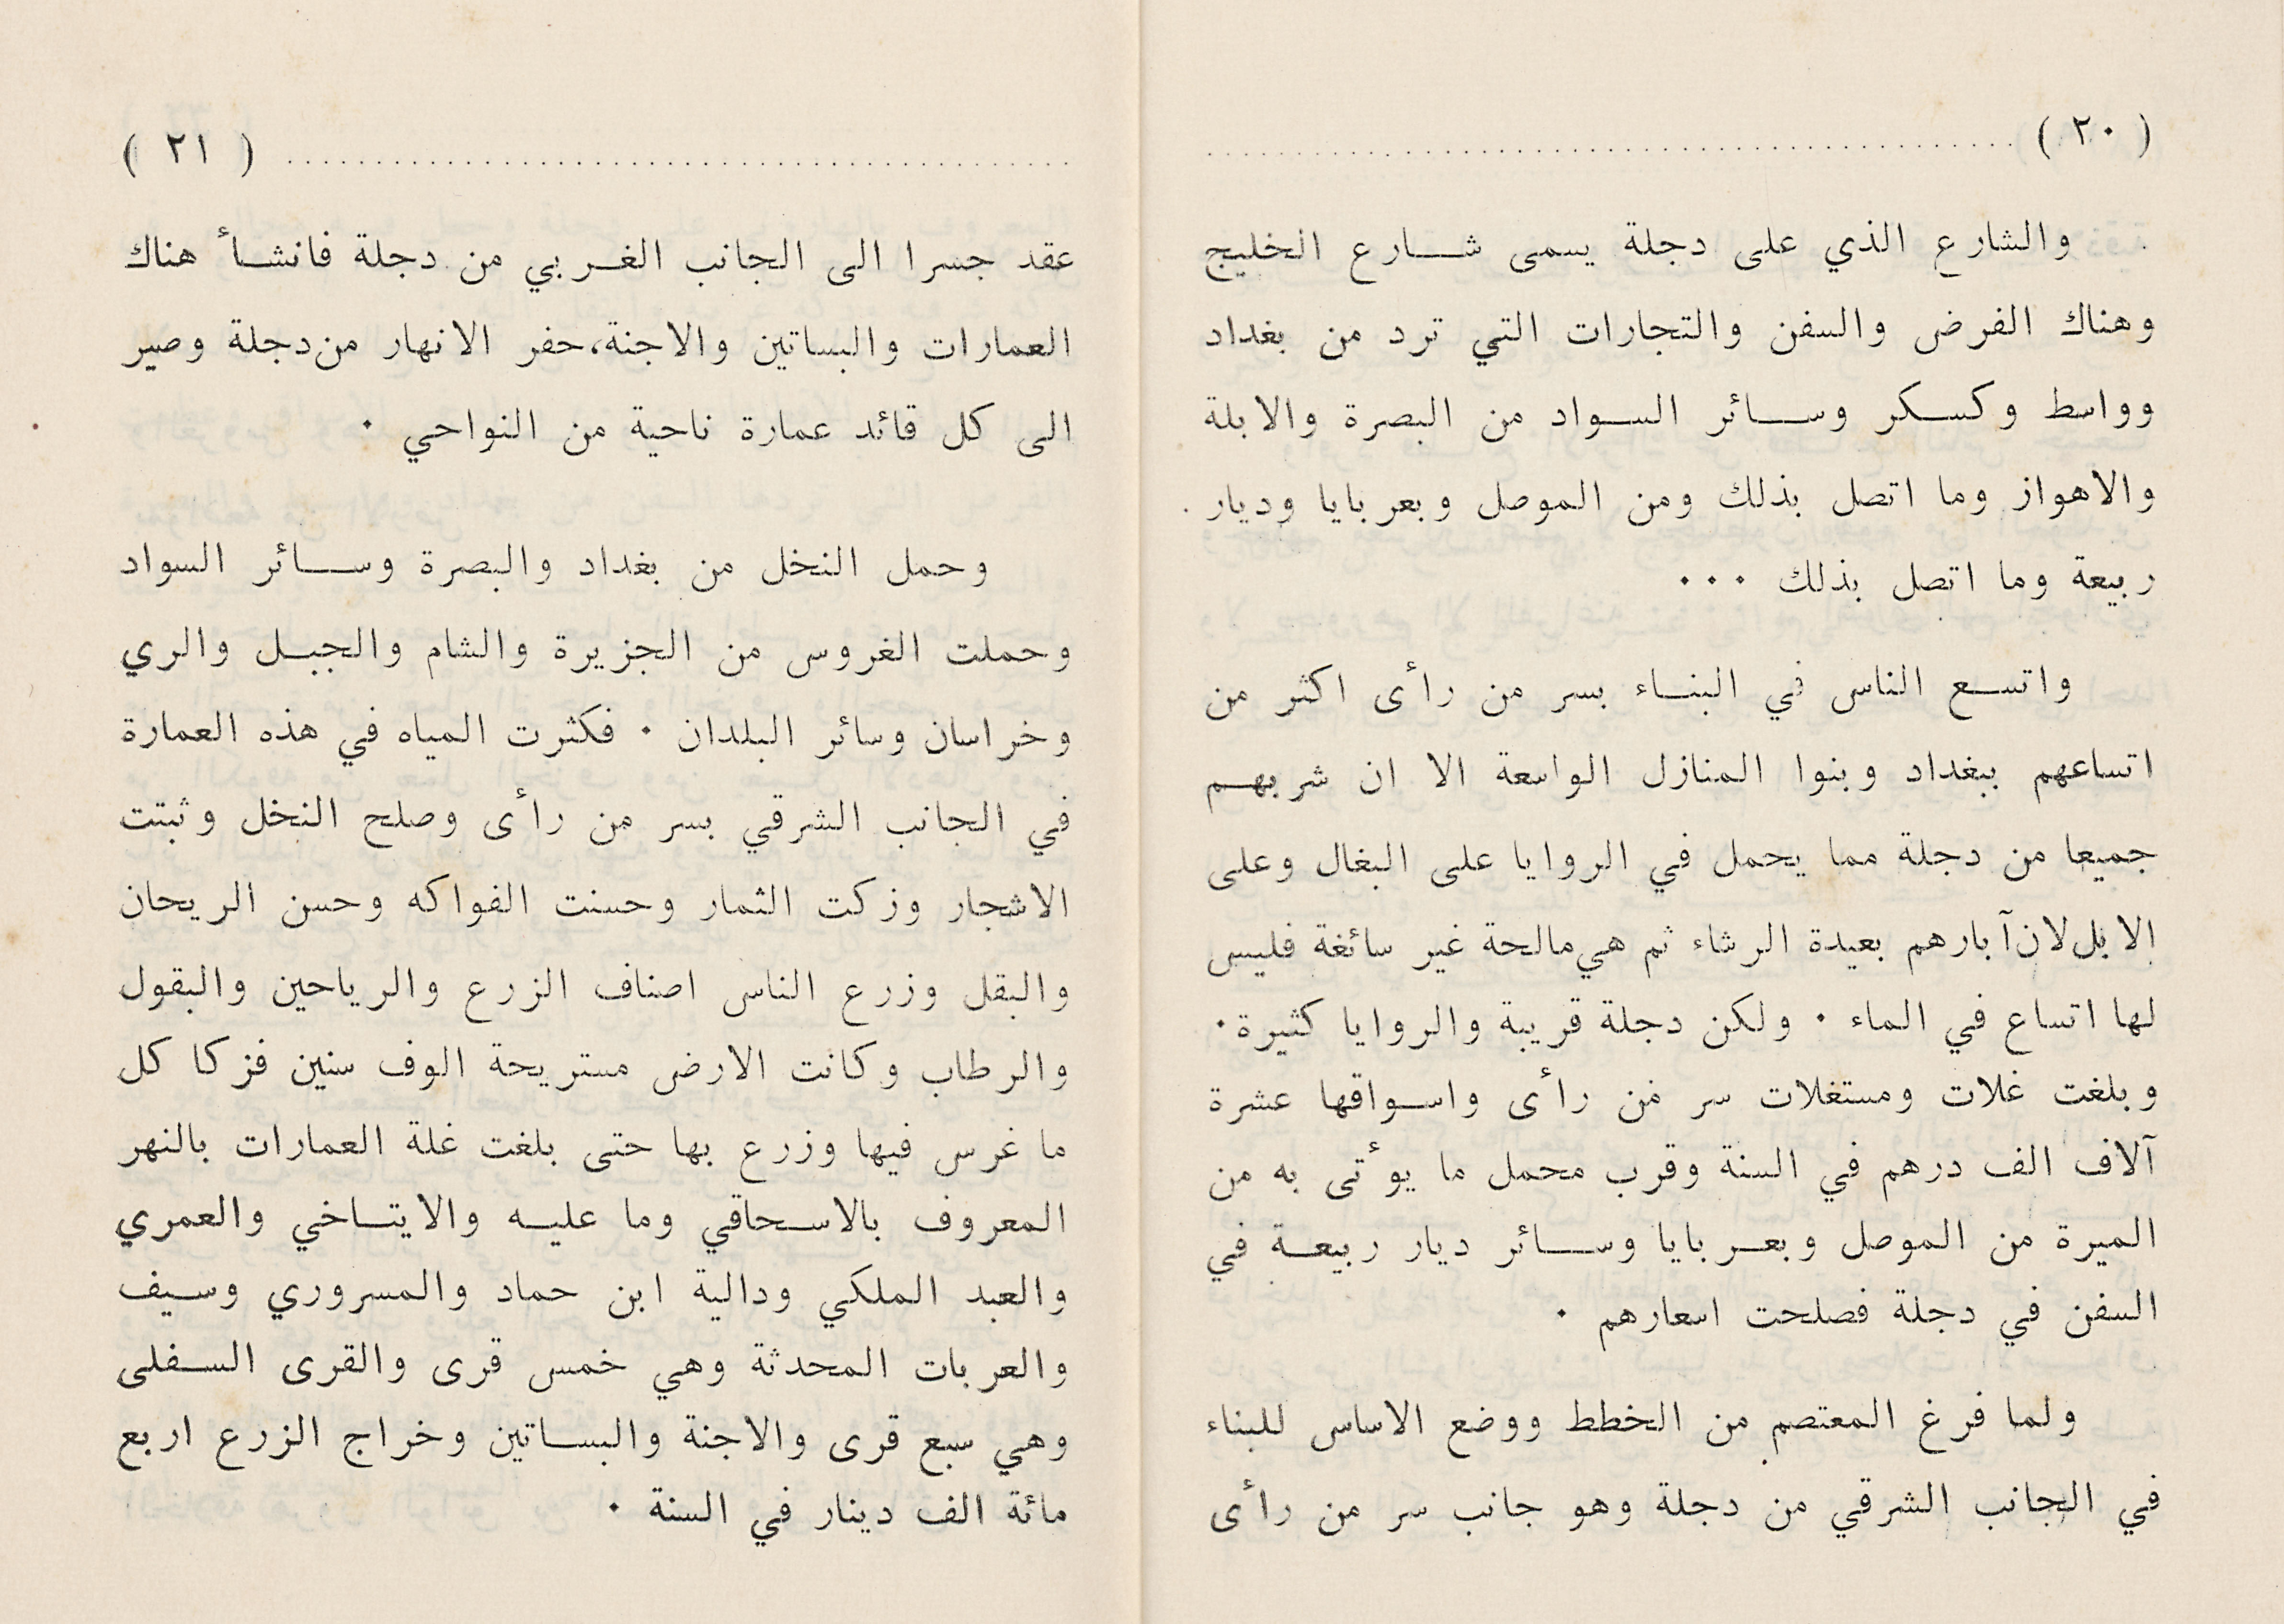 ( ٢٠ )
والشارع الذي على دجلة يسمى شارع الخليج
وهناك الفرض والسفن والتجارات التي ترد من بغداد
وواسط وكسكر وسائر السواد من البصرة والابلة
والاهواز وما اتصل بذلك ومن الموصل وبعربايا وديار
ربيعة وما اتصل بذلك ٠٠٠
واتسع الناس في البناء بسر من رأى اكثر من
اتساعهم ببغداد وبنوا المنازل الواسعة الا ان شربهم
جميعا من دجلة مما يحمل في الروايا على البغال وعلى
الابل لان آبارهم بعيدة الرشاء ثم هي مالحة غير سائغة فليس
لها اتساع في الماء ٠ ولكن دجلة قريبة والروايا كثيرة ٠
وبلغت غلات ومستغلات سر من رأى واسواقها عشرة
آلاف الف درهم في السنة وقرب محمل ما يؤتى به من
الميرة من الموصل وبعربايا وسائر ديار ربيعة في
السفن في دجلة فصلحت اسعارهم ٠
ولما فرغ المعتصم من الخطط ووضع الاساس للبناء
في الجانب الشرقي من دجلة وهو جانب سر من رأى
( ٢١ )
عقد جسرا الى الجانب الغربي من دجلة فانشأ هناك
العمارات والبساتين والاجنة، حفر الانهار من دجلة وصير
الى كل قائد عمارة ناحية من النواحي ٠
وحمل النخل من بغداد والبصرة وسائر السواد
وحملت الغروس من الجزيرة والشام والجبل والري
وخراسان وسائر البلدان ٠ فكثرت المياه في هذه العمارة
في الجانب الشرقي بسر من رأى وصلح النخل وثبتت
الاشجار وزكت الثمار وحسنت الفواكه وحسن الريحان
والبقل وزرع الناس اصناف الزرع والرياحين والبقول
والرطاب وكانت الارض مستريحة الوف سنين فزكا كل
ما غرس فيها وزرع بها حتى بلغت غلة العمارات بالنهر
المعروف بالاسحاقي وما عليه والايتاخي والعمري
والعبد الملكي ودالية ابن حماد والمسروري وسيف
والعربات المحدثة وهي خمس قرى والقرى السفلى
وهي سبع قرى والاجنة والبساتين وخراج الزرع اربع
مائة الف دينار في السنة ٠